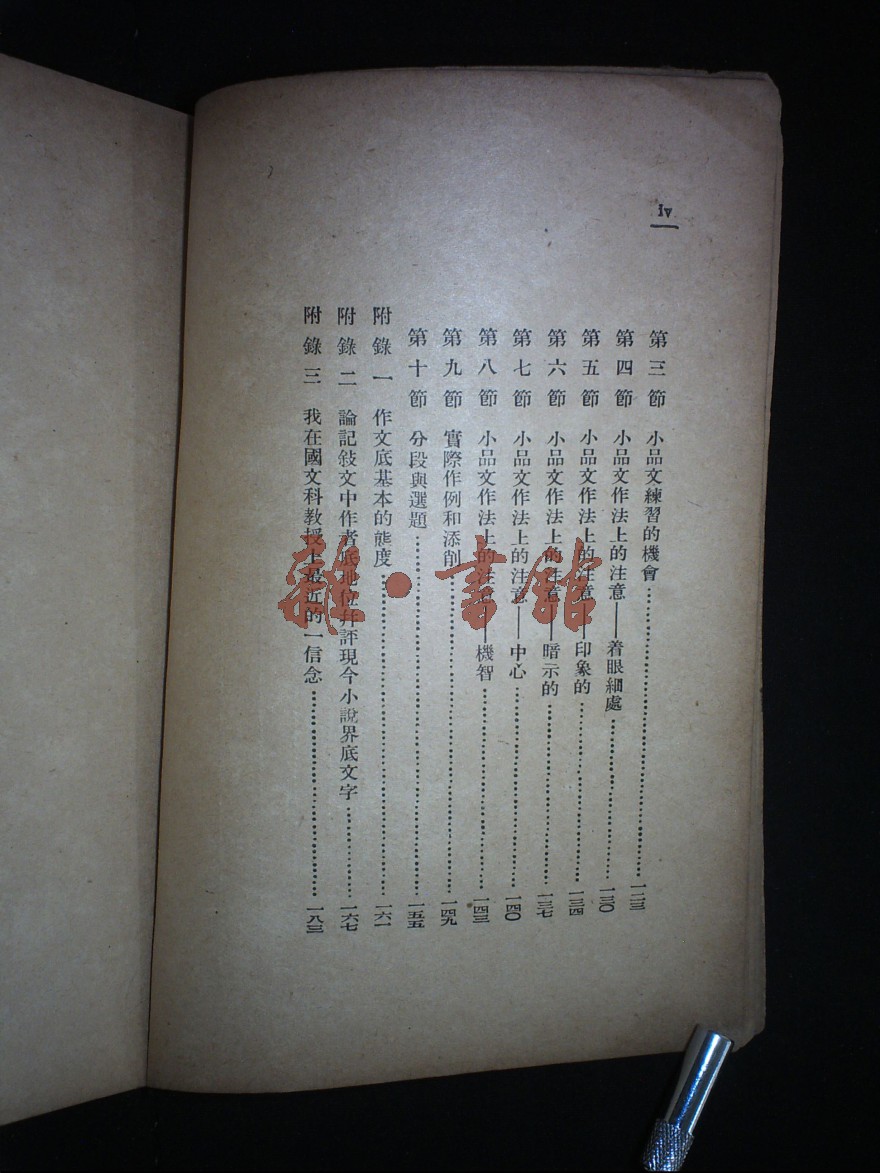 iv
第三節 小品文練習的機會……一二三
第四節 小品文作法上的注意——着眼細處……一三〇
第五節 小品文作法上的注意——印象的……一三四
第六節 小品文作法上的注意——暗示的……一三七
第七節 小品文作法上的注意——中心……一四〇
第八節 小品文作法上的注意——機智……一四三
第九節 實際作例和添削……一四九
第十節 分段與選題……一五五
附錄一 作文底基本的態度……一六一
附錄二 論記敍文中作者底地位幷評現今小說界底文字……一六七
附錄三 我在國文科教授上最近的一信念……一八三
雜·書館